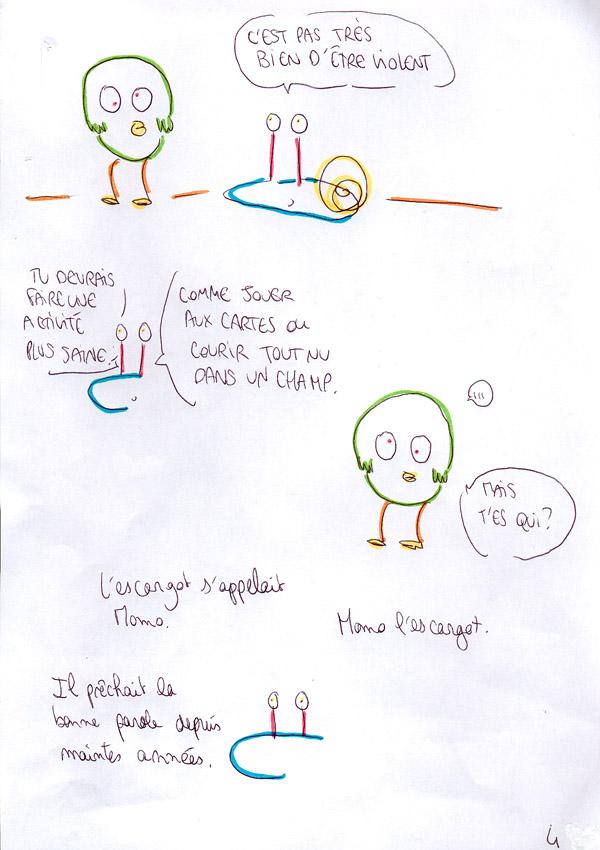 C'EST PAS TRÈS
BIEN D'ÊTRE VIOLENT
TU DEVRAIS
FAIRE UNE
ACTIVITÉ
PLUS SAINE.
COMME JOUER
AUX CARTES OU
COURIR TOUT NU
DANS UN CHAMP.
...
MAIS
T'ES QUI?
L'escargot s'appelait
Momo.
Momo l'escargot.
Il prêchait la
bonne parole depuis
maintes années.
4